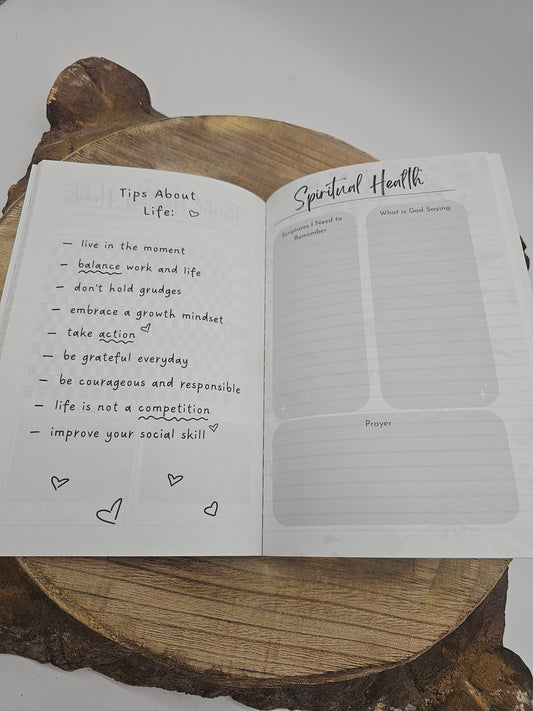 Tips About
Life:
— live in the moment
— balance work and life
— don't hold grudges
— embrace a growth mindset
— take action
— be grateful everyday
— be courageous and responsible
— life is not a competition
— improve your social skill
Spiritual Health
Scriptures I Need to
Remember
What is God Saying
Prayer